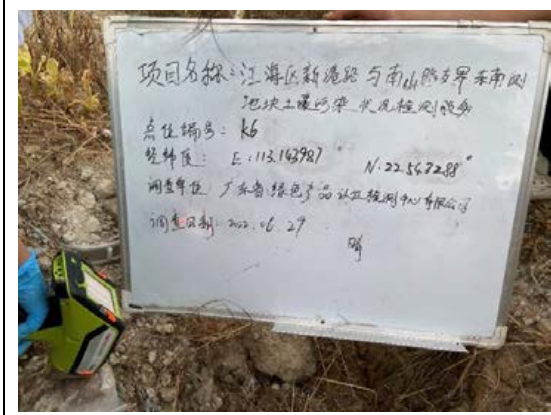 项目名称:江海区新港路与南山路交界东南侧
地块土壤污染状况检测服务
点位编号:k6
经纬度: E:113.143987° N:22.543288°
调查单位:广东省绿色产品认证检测中心有限公司
调查日期:2022.06.29